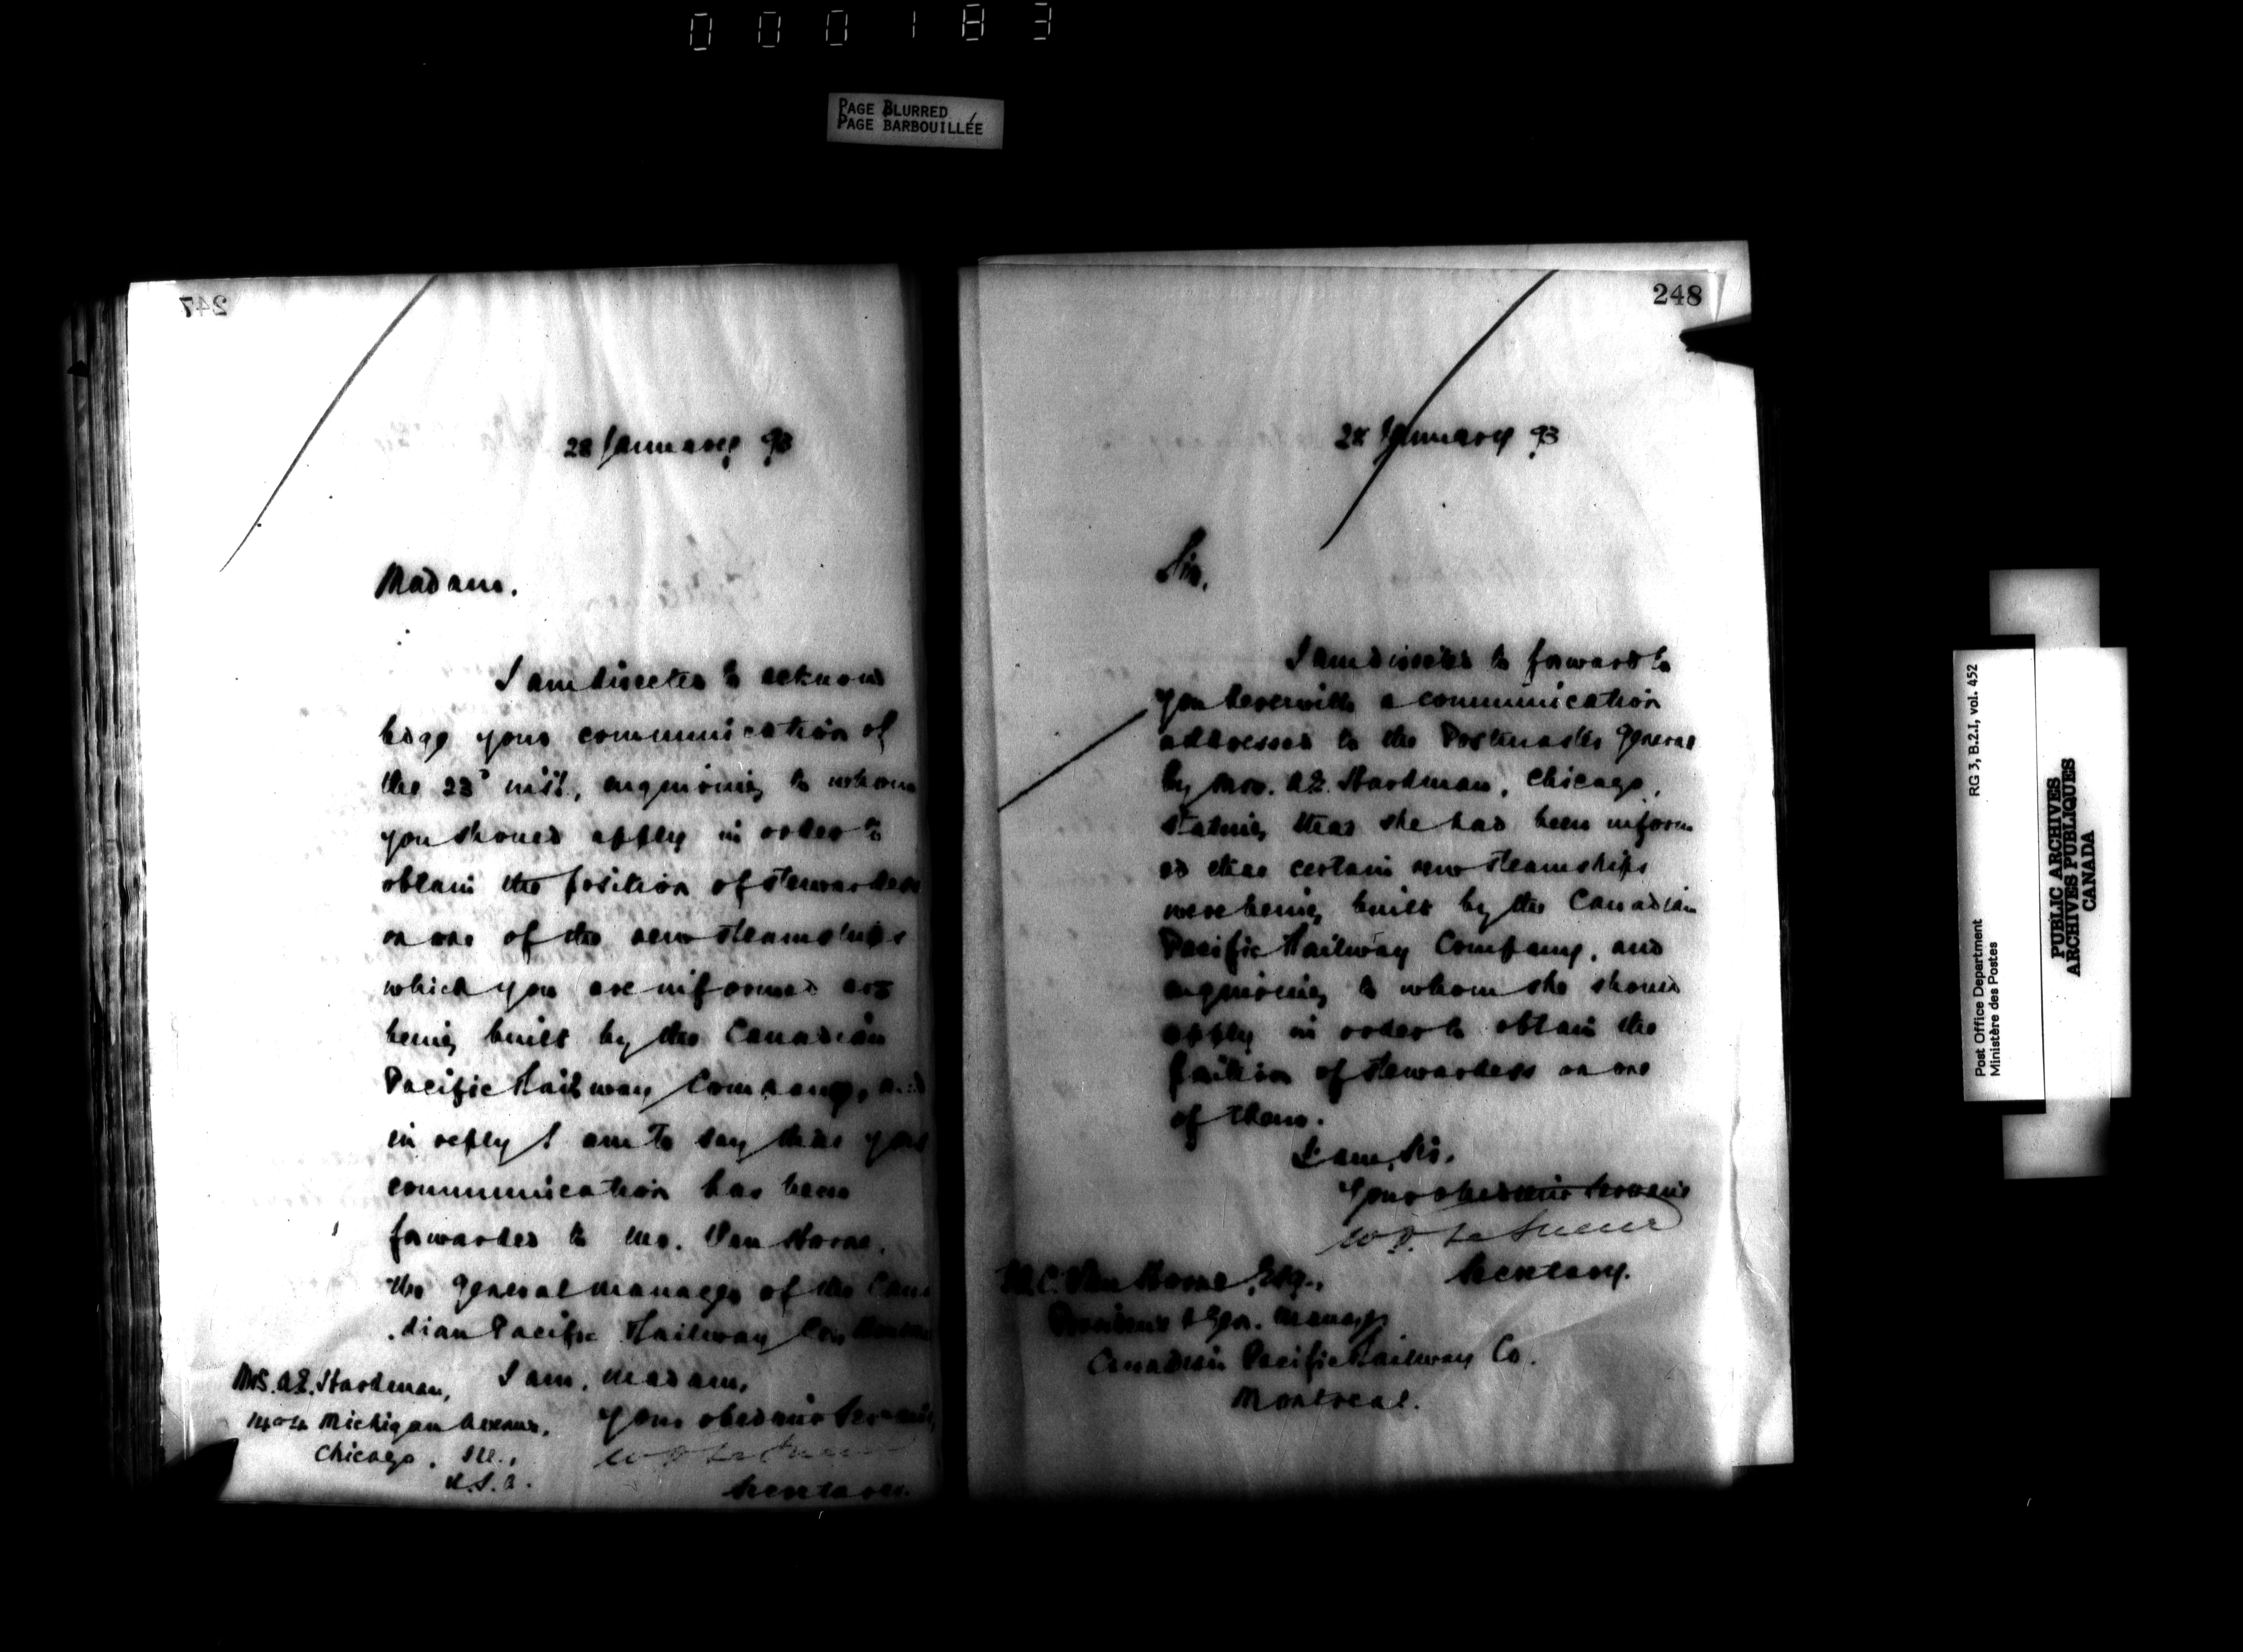 000183
PAGE BLURRED
PAGE BARBOUILLÉE
247
28 January, 93
Madam.
I am directed to acknow
ledge your communication of
the 23d inst, enquiring to whom
you should apply in order to
obtain the position of stewardess
on one of the new steamships
which you are informed are
being built by the Canadian
Pacific Railway Company, and
in reply I am to say that your
communication has been
forwarded to Mr. Van Horne,
the General Manager of the Cana
dian Pacific Railway Co
I am, Madam,
Your obedient Servant,
W D LeSueur
Secretary.
Mrs. A.E. Hardman,
1404 Michigan Avenue,
Chicago, Ill.,
U.S.A.
248
28 January 93
Sir,
I am directed to forward to
you herewith a communication
addressed to the Postmaster General
by Mrs. A.E. Hardman, Chicago,
stating that she had been inform
ed that certain new steamships
were being built by the Canadian
Pacific Railway Company, and
enquiring to whom she should
apply in order to obtain the
position of stewardess on one
of them.
I am, Sir,
Your obedient Servant
W.D. LeSueur
Secretary.
W.C. Van Horne, Esq.,
President & Gen. Manager
Canadian Pacific Railway Co.
Montreal.
Post Office Department
Ministère des Postes
RG 3, B.2.I, vol. 452
PUBLIC ARCHIVES
ARCHIVES PUBLIQUES
CANADA